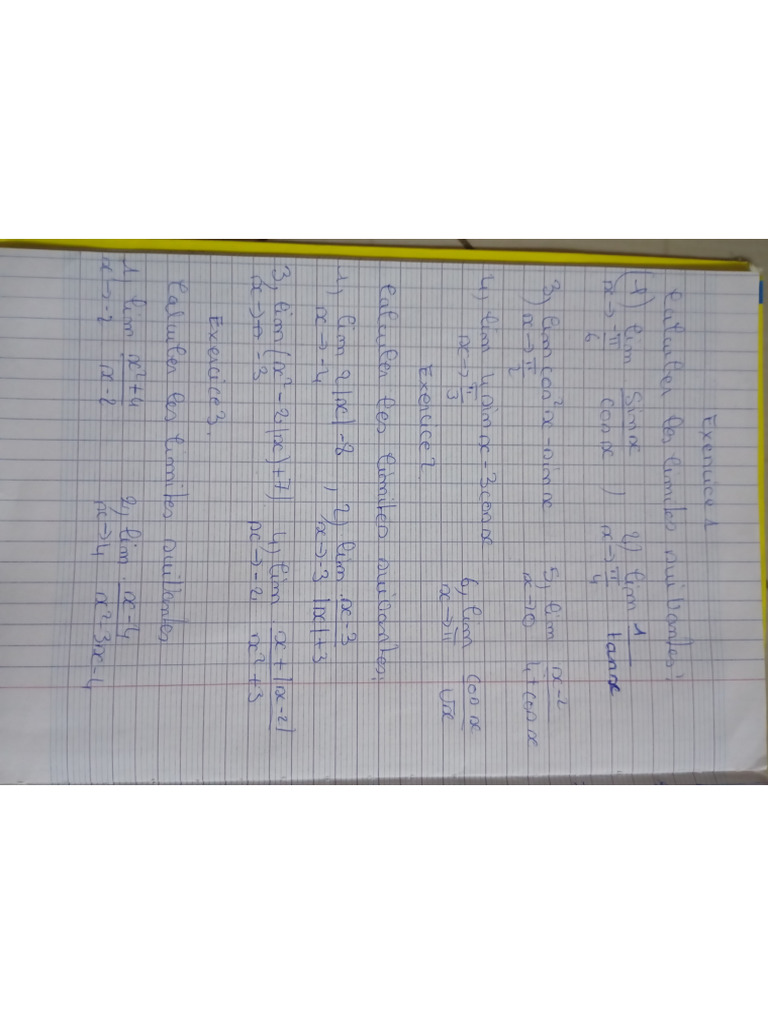 Exercice 1
Calculer les limites suivantes :
1) lim x→-π/6 sinx/cosx , 2) lim x→π/4 1/tanx
3) lim x→π/2 cos²x - sinx 5, lim x→0 x-2/4+cosx
4, lim x→π/3 4sinx - 3cosx 6, lim x→π cosx/√x
Exercice 2
Calculer les limites suivantes :
1, lim x→-4 2|x|-8 , 2) lim x→-3 x-3/|x|+3
3, lim x→-3 (x²-2|x|+7) 4, lim x→-2 x+|x-2|/x²+3
Exercice 3.
Calculer les limites suivantes
1) lim x→-2 x²+4/x-2 2, lim x→4 x-4/x²-3x-4